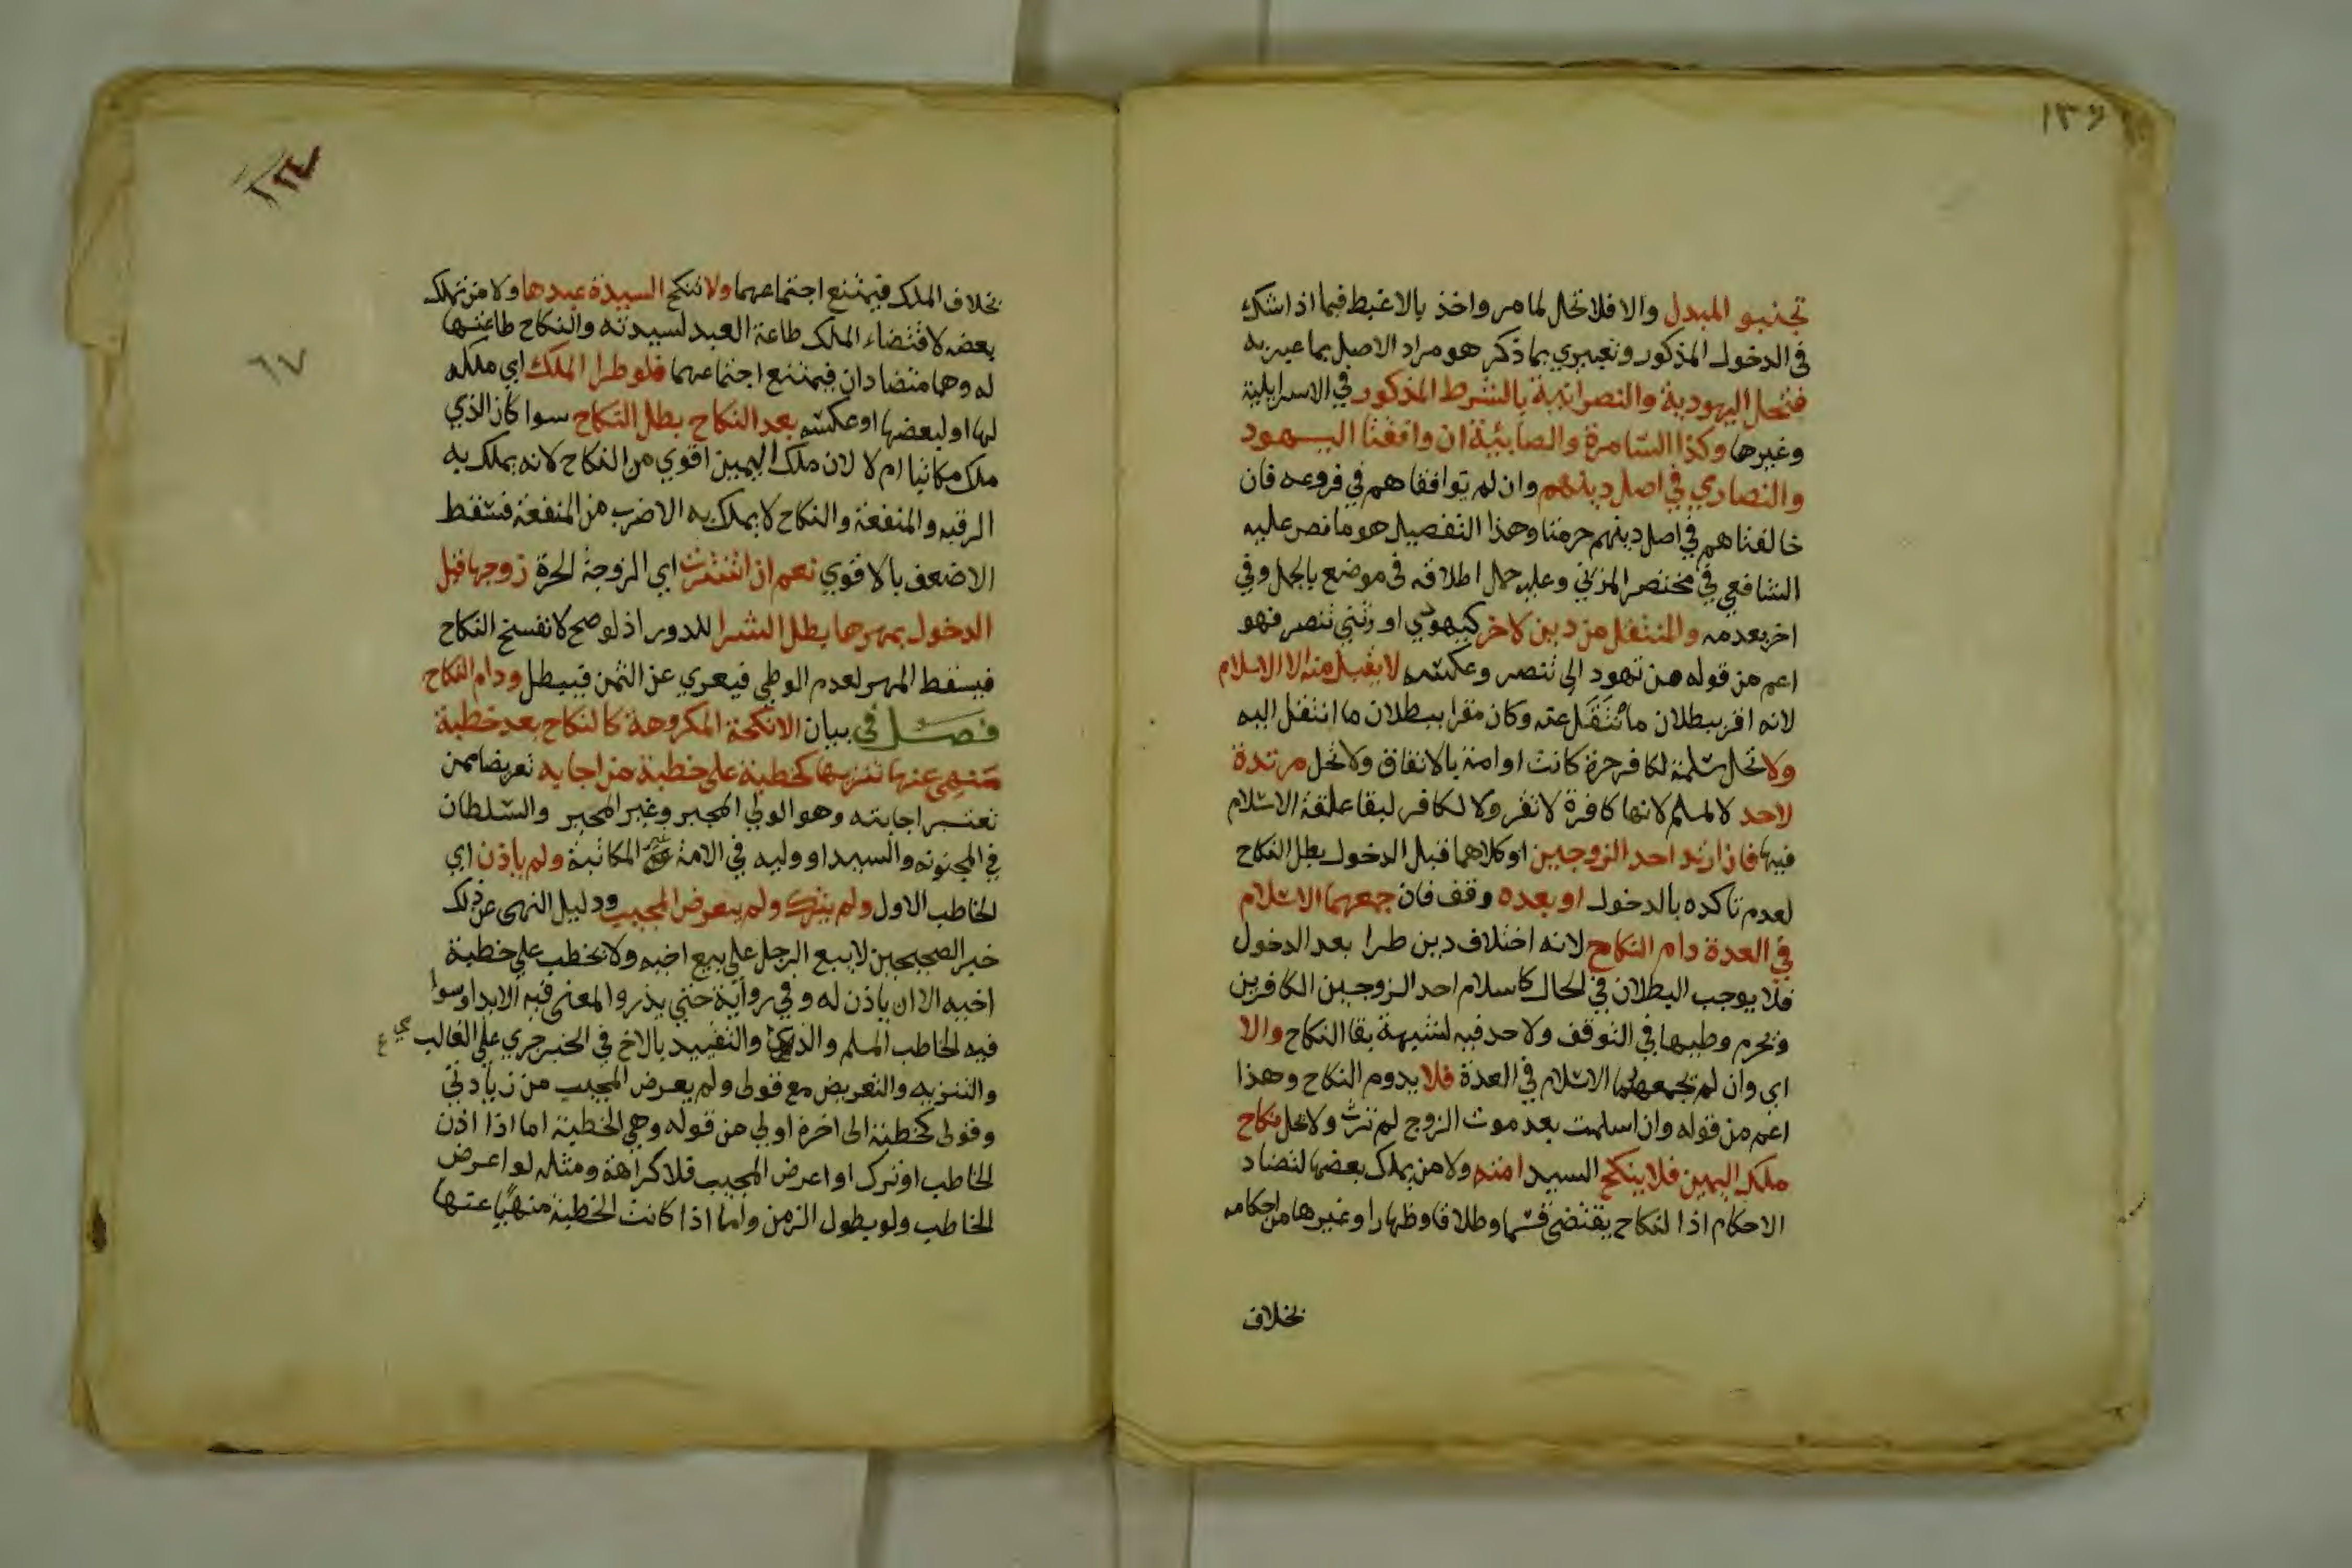 ١٣٦
تجنبو المبدل والا فلا تحل لما مر واخذ بالاغبط فيما اذا شك
في الدخول المذكور وتعبيري بما ذكر هو مراد الاصل بما عبر به
فتحل اليهودية والنصرانية بالشرط المذكور في الاسرايلية
وغيرها وكذا السامرة والصابئية ان وافقتا اليهود
والنصاري في اصل دينهم وان لم توافقاهم في فروعه فان
خالفتاهم في اصل دينهم حرمتا وهذا التفصيل هو ما نص عليه
الشافعي في مختصر المزني وعليه حمل اطلاقه في موضع بالحل وفي
اخر بعدمه والمنتقل من دين لاخر كيهودي او وثني تنصر فهو
اعم من قوله من تهود الى تنصر وعكسه لا يقبل منه الا الاسلام
لانه اقر ببطلان ما تنقل عنه وكان مقرا ببطلان ما انتقل اليه
ولا تحل مسلمة لكافر حرة كانت او امة بالاتفاق ولا تحل مرتدة
لاحد لا لمسلم لانها كافرة لا تقر ولا لكافر لبقا علقة الاسلام
فيها فان ارتد احد الزوجين او كلاهما قبل الدخول بطل النكاح
لعدم تاكده بالدخول او بعده وقف فان جمعهما الاسلام
في العدة دام النكاح لانه اختلاف دين طرا بعد الدخول
فلا يوجب البطلان في الحال كاسلام احد الزوجين الكافرين
ويحرم وطيها في التوقف ولا حد فيه لشبهة بقا النكاح والا
اي وان لم يجمعهما الاسلام في العدة فلا يدوم النكاح وهذا
اعم من قوله وان اسلمت بعد موت الزوج لم ترث ولا تحل نكاح
ملك اليمين فلا ينكح السيد امته ولا من يملك بعضها لتضاد
الاحكام اذا لنكاح يقتضي قسما وطلاقا وظهارا وغيرها من احكامه
بخلاف
٦٧
بخلاف الملك فيمتنع اجتماعهما ولا تنكح السيدة عبدها ولا من تملك
بعضه لاقتضاء الملك طاعة العبد لسيدته والنكاح طاعتها
له وهما متضادان فيمتنع اجتماعهما فلو طرا الملك اي ملكه
لها او لبعضها او عكسه بعد النكاح بطل النكاح سوا كان الذي
ملك مكاتبا ام لا لان ملك اليمين اقوي من النكاح لانه يملك به
الرقبه والمنفعة والنكاح لا يملك به الا ضرب من المنفعة فسقط
الاضعف بالاقوي نعم ان اشترت اي الزوجة الحرة زوجها قبل
الدخول بمهرها بطل الشرا للدور اذ لو صح لانفسخ النكاح
فيسقط المهر لعدم الوطي فيعري عن الثمن فيبطل ودام النكاح
فصل في بيان الانكحة المكروهة كالنكاح بعد خطبة
منهي عنها تنزيها كخطبة على خطبة من اجابه تعريضا ممن
تعتبر اجابته وهو الولي المجبر وغير المجبر والسلطان
في المجنونه والسيد او وليه في الامة غير المكاتبة ولم ياذن اي
الخاطب الاول ولم يترك ولم يعرض المجيب ودليل النهي عن ذلك
خبر الصحيحين لا يبيع الرجل على بيع اخيه ولا يخطب على خطبة
اخيه الا ان ياذن له وفي رواية حتي يذر والمعنى فيه الايذا وسوا
فيه الخاطب المسلم والذمي والتقييد بالاخ في الخبر جري على الغالب
والتنزيه والتعريض مع قولي ولم يعرض المجيب من زيادتي
وقولى كخطبة الى اخره اولي من قوله وهي الخطبة اما اذا اذن
الخاطب او ترك او اعرض المجيب فلا كراهة ومثله لو اعرض
الخاطب ولو بطول الزمن واما اذا كانت الخطبة منهيا عنها